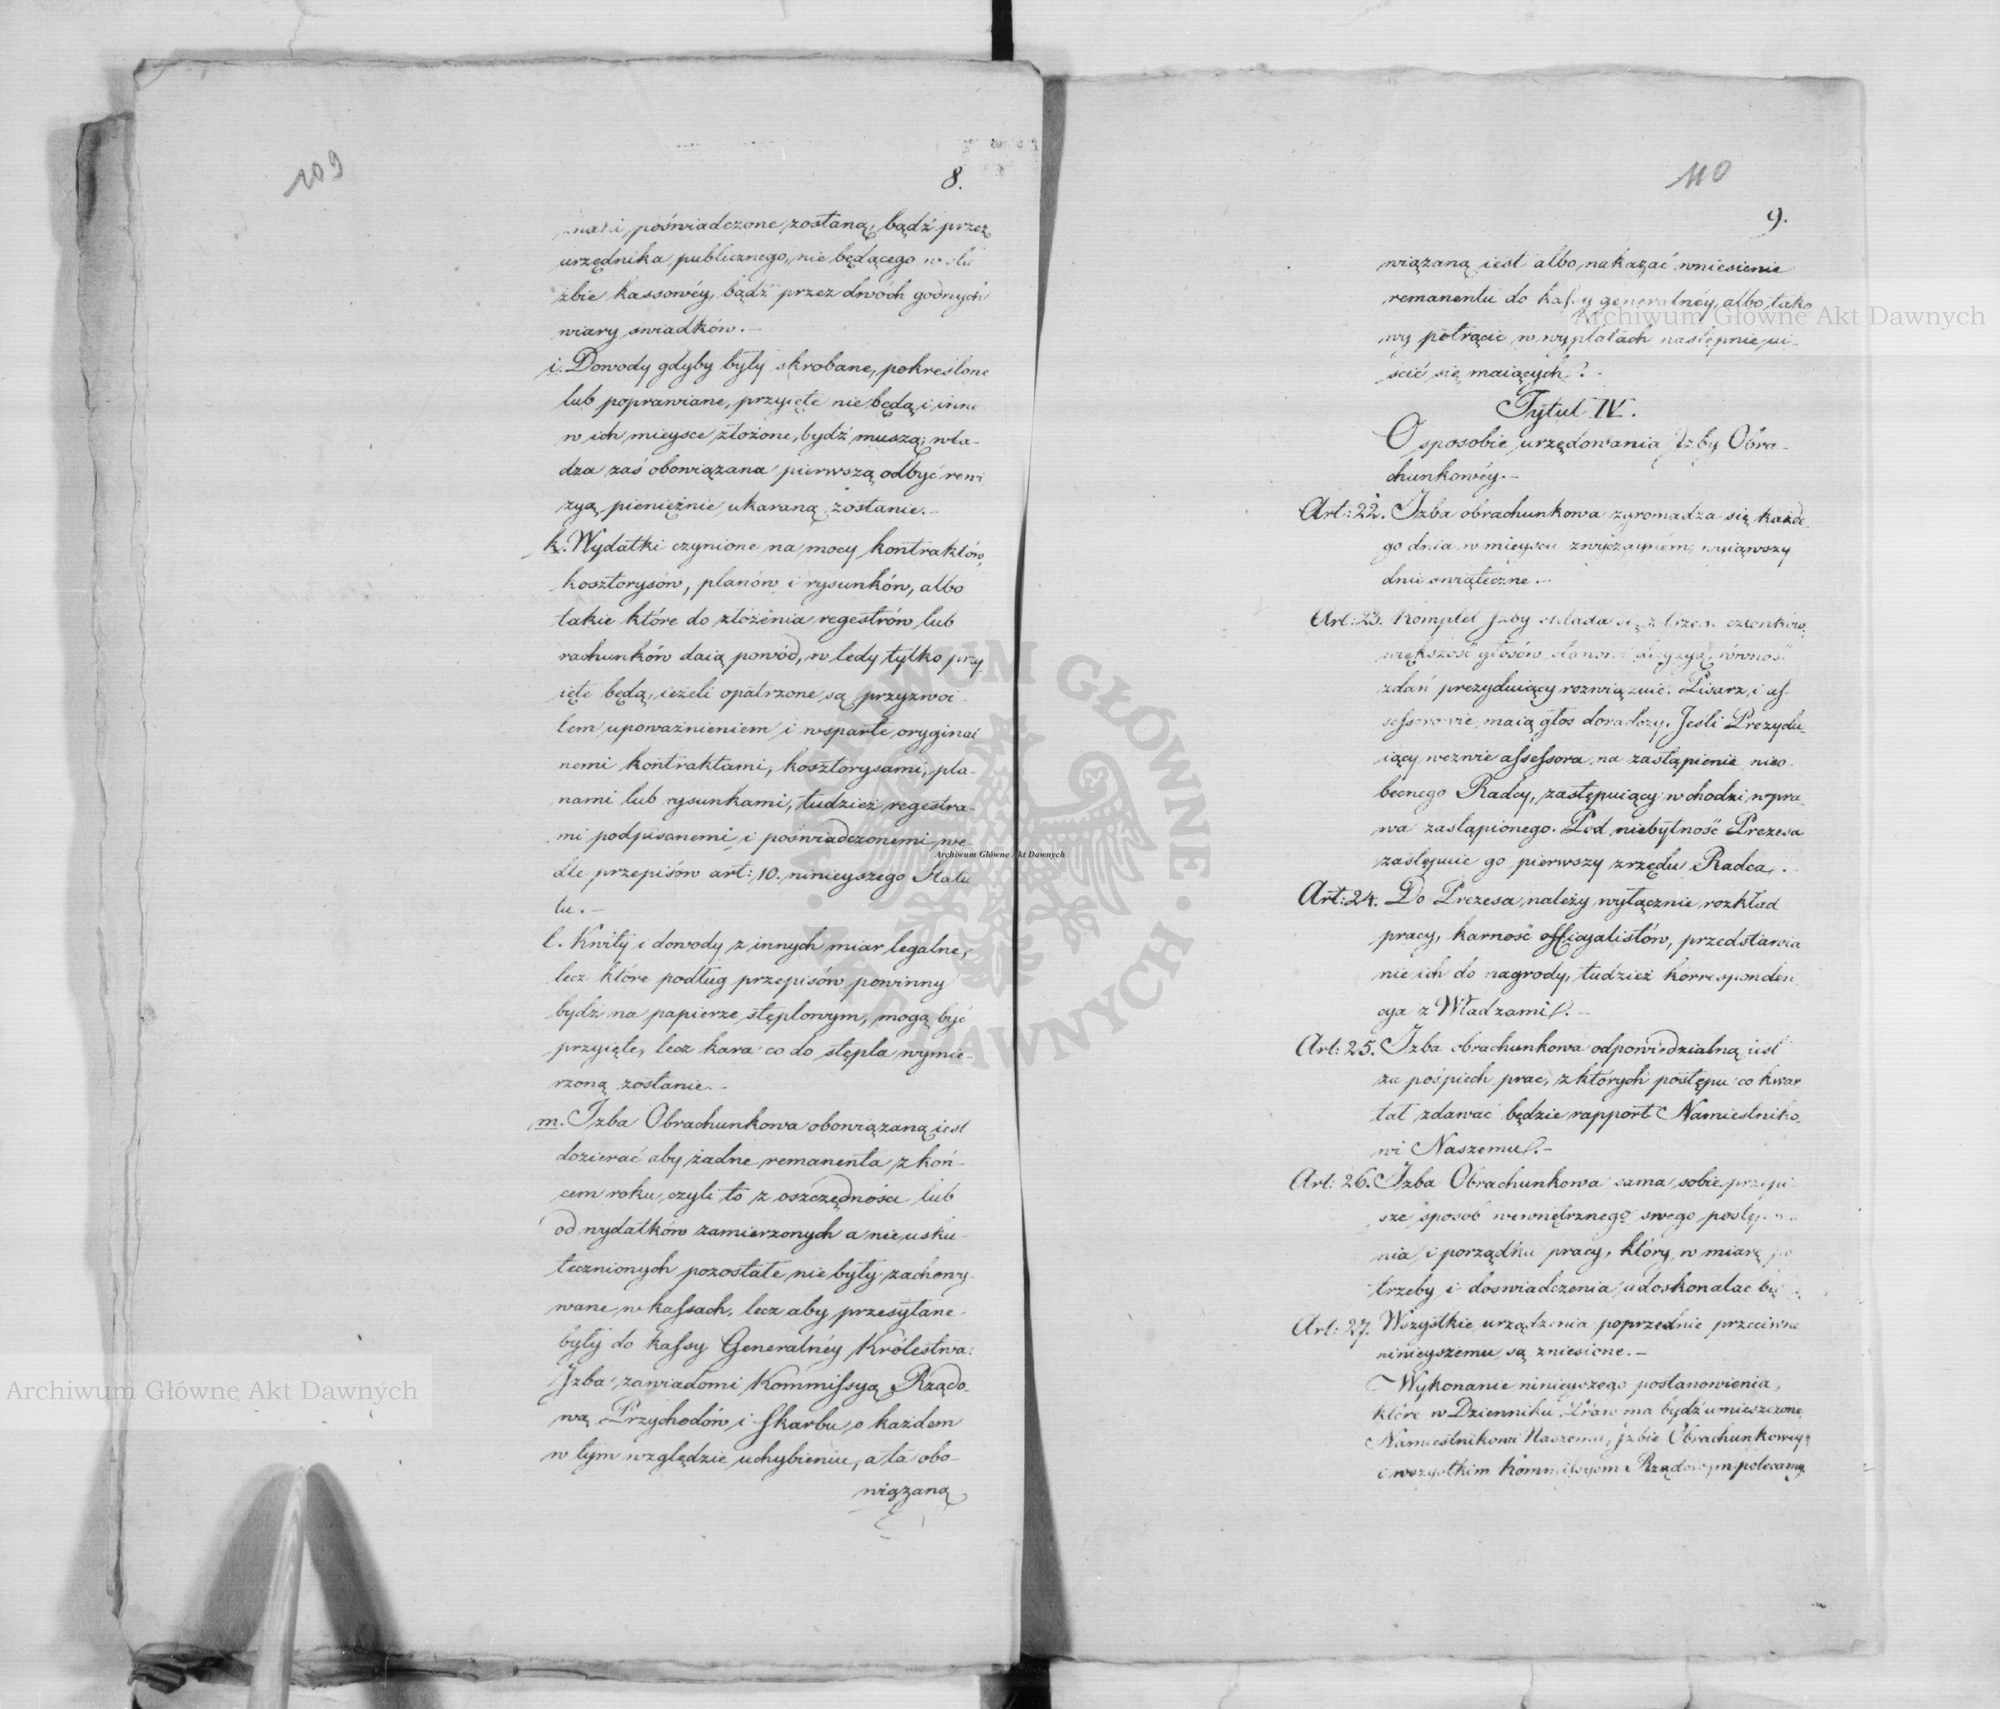 109
8.
znaki poświadczone zostaną, bądź przez
urzędnika publicznego, nie będącego w słu
żbie kassowéy, bądź przez dwóch godnych
wiary swiadków. —
i. Dowody gdyby były skrobane, pokreslone
lub poprawiane, przyięte nie będą i inne
w ich mieysce złożone, bydź muszą; wła-
dza zaś obowiązana pierwszą odbyć rewi
zyą pieniężnie ukaraną zostanie. —
k. Wydatki czynione na mocy kontraktów,
kosztorysów, planów i rysunków, albo
takie które do złożenia regestrów lub
rachunków daią powód, w tedy tylko przy
ięte będą, ieżeli opatrzone są przyzwoi
tem upoważnieniem i wsparte oryginal
nemi kontraktami, kosztorysami, pla-
nami lub rysunkami, tudzież regestra-
mi podpisanemi i poświadczonemi we-
dle przepisów art: 10. ninieyszego Statu
tu. —
l. Kwity i dowody z innych miar legalne,
lecz które podług przepisów powinny
bydź na papierze stęplowym, mogą być
przyięte, lecz kara co do stępla wymie-
rzoną zostanie. —
m. Izba Obrachunkowa obowiązaną iest
dozierać aby żadne remanenta z koń-
cem roku, czyli to z oszczędności lub
od wydatków zamierzonych a nie usku-
tecznionych pozostałe nie były zachowy-
wane w kassach, lecz aby przesyłane
były do kassy Generalnéy Królestwa.
Izba zawiadomi Kommissyą Rządo-
wą Przychodów i Skarbu o każdem
w tym względzie uchybieniu, a ta obo-
wiązaną
110
9.
wiązaną iest albo nakazać wniesienie
remanentu do kassy generalnéy, albo tako
wy potrącić w wypłatach następnie ui-
scić się maiących. —
Tytuł IV.
O sposobie urzędowania Izby Obra-
chunkowéy. —
Art: 22. Izba obrachunkowa zgromadza się każde-
go dnia w mieyscu zwyczaynem, wyiąwszy
dnie swiąteczne. —
Art: 23. Komplet Izby składa się z trzech członków,
większość głosów stanowi decyzyą, równość
zdań prezyduiący rozwiązuie. Pisarz i as-
sessorowie maią głos doradczy. Jesli Prezydu-
iący wezwie assessora na zastąpienie nieo-
becnego Radcy, zastępuiący wchodzi w pra-
wa zastąpionego. Pod niebytność Prezesa
zastępuie go pierwszy z rzędu Radca. —
Art: 24. Do Prezesa należy wyłącznie rozkład
pracy, karność officyalistów, przedstawia
nie ich do nagrody, tudzież korresponden
cya z Władzami. —
Art: 25. Izba obrachunkowa odpowiedzialną iest
za pośpiech prac, z których postępu co kwar
tał zdawać będzie rapport Namiestniko-
wi Naszemu. —
Art: 26. Izba Obrachunkowa sama sobie przepi
sze sposób wewnętrznego swego postępowa
nia i porządku pracy, który w miarę po
trzeby i doswiadczenia udoskonalac
Art: 27. Wszystkie urządzenia poprzednie przeciwne
ninieyszemu są zniesione. —
Wykonanie ninieyszego postanowienia,
które w Dzienniku Praw ma bydź umieszczone,
Namiestnikowi Naszemu, Izbie Obrachunkowey,
i wszystkim Kommissyom Rządowym polecamy.
Archiwum Główne Akt Dawnych
Archiwum Główne Akt Dawnych
Archiwum Główne Akt Dawnych
ARCHIWUM GŁÓWNE AKT DAWNYCH